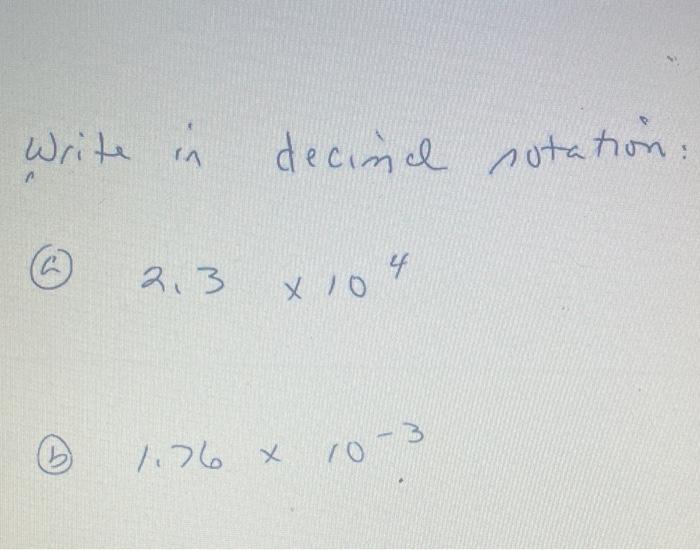 Write in decimal notation:
(a) 2.3 x 10^4
(b) 1.76 x 10^-3